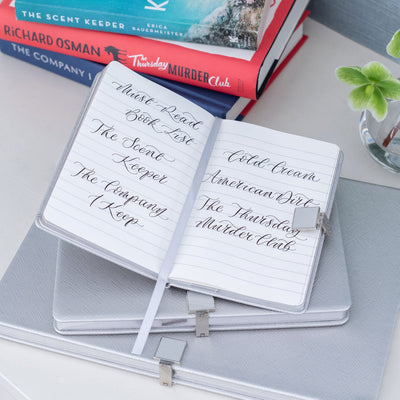 THE SCENT KEEPER
ERICA
BAUERMEISTER
RICHARD OSMAN
The Thursday
MURDER CLUB
THE COMPANY I K
Must Read
Book List
The Scent
Keeper
The Company
I Keep
Cold Cream
American Dirt
The Thursday
Murder Club